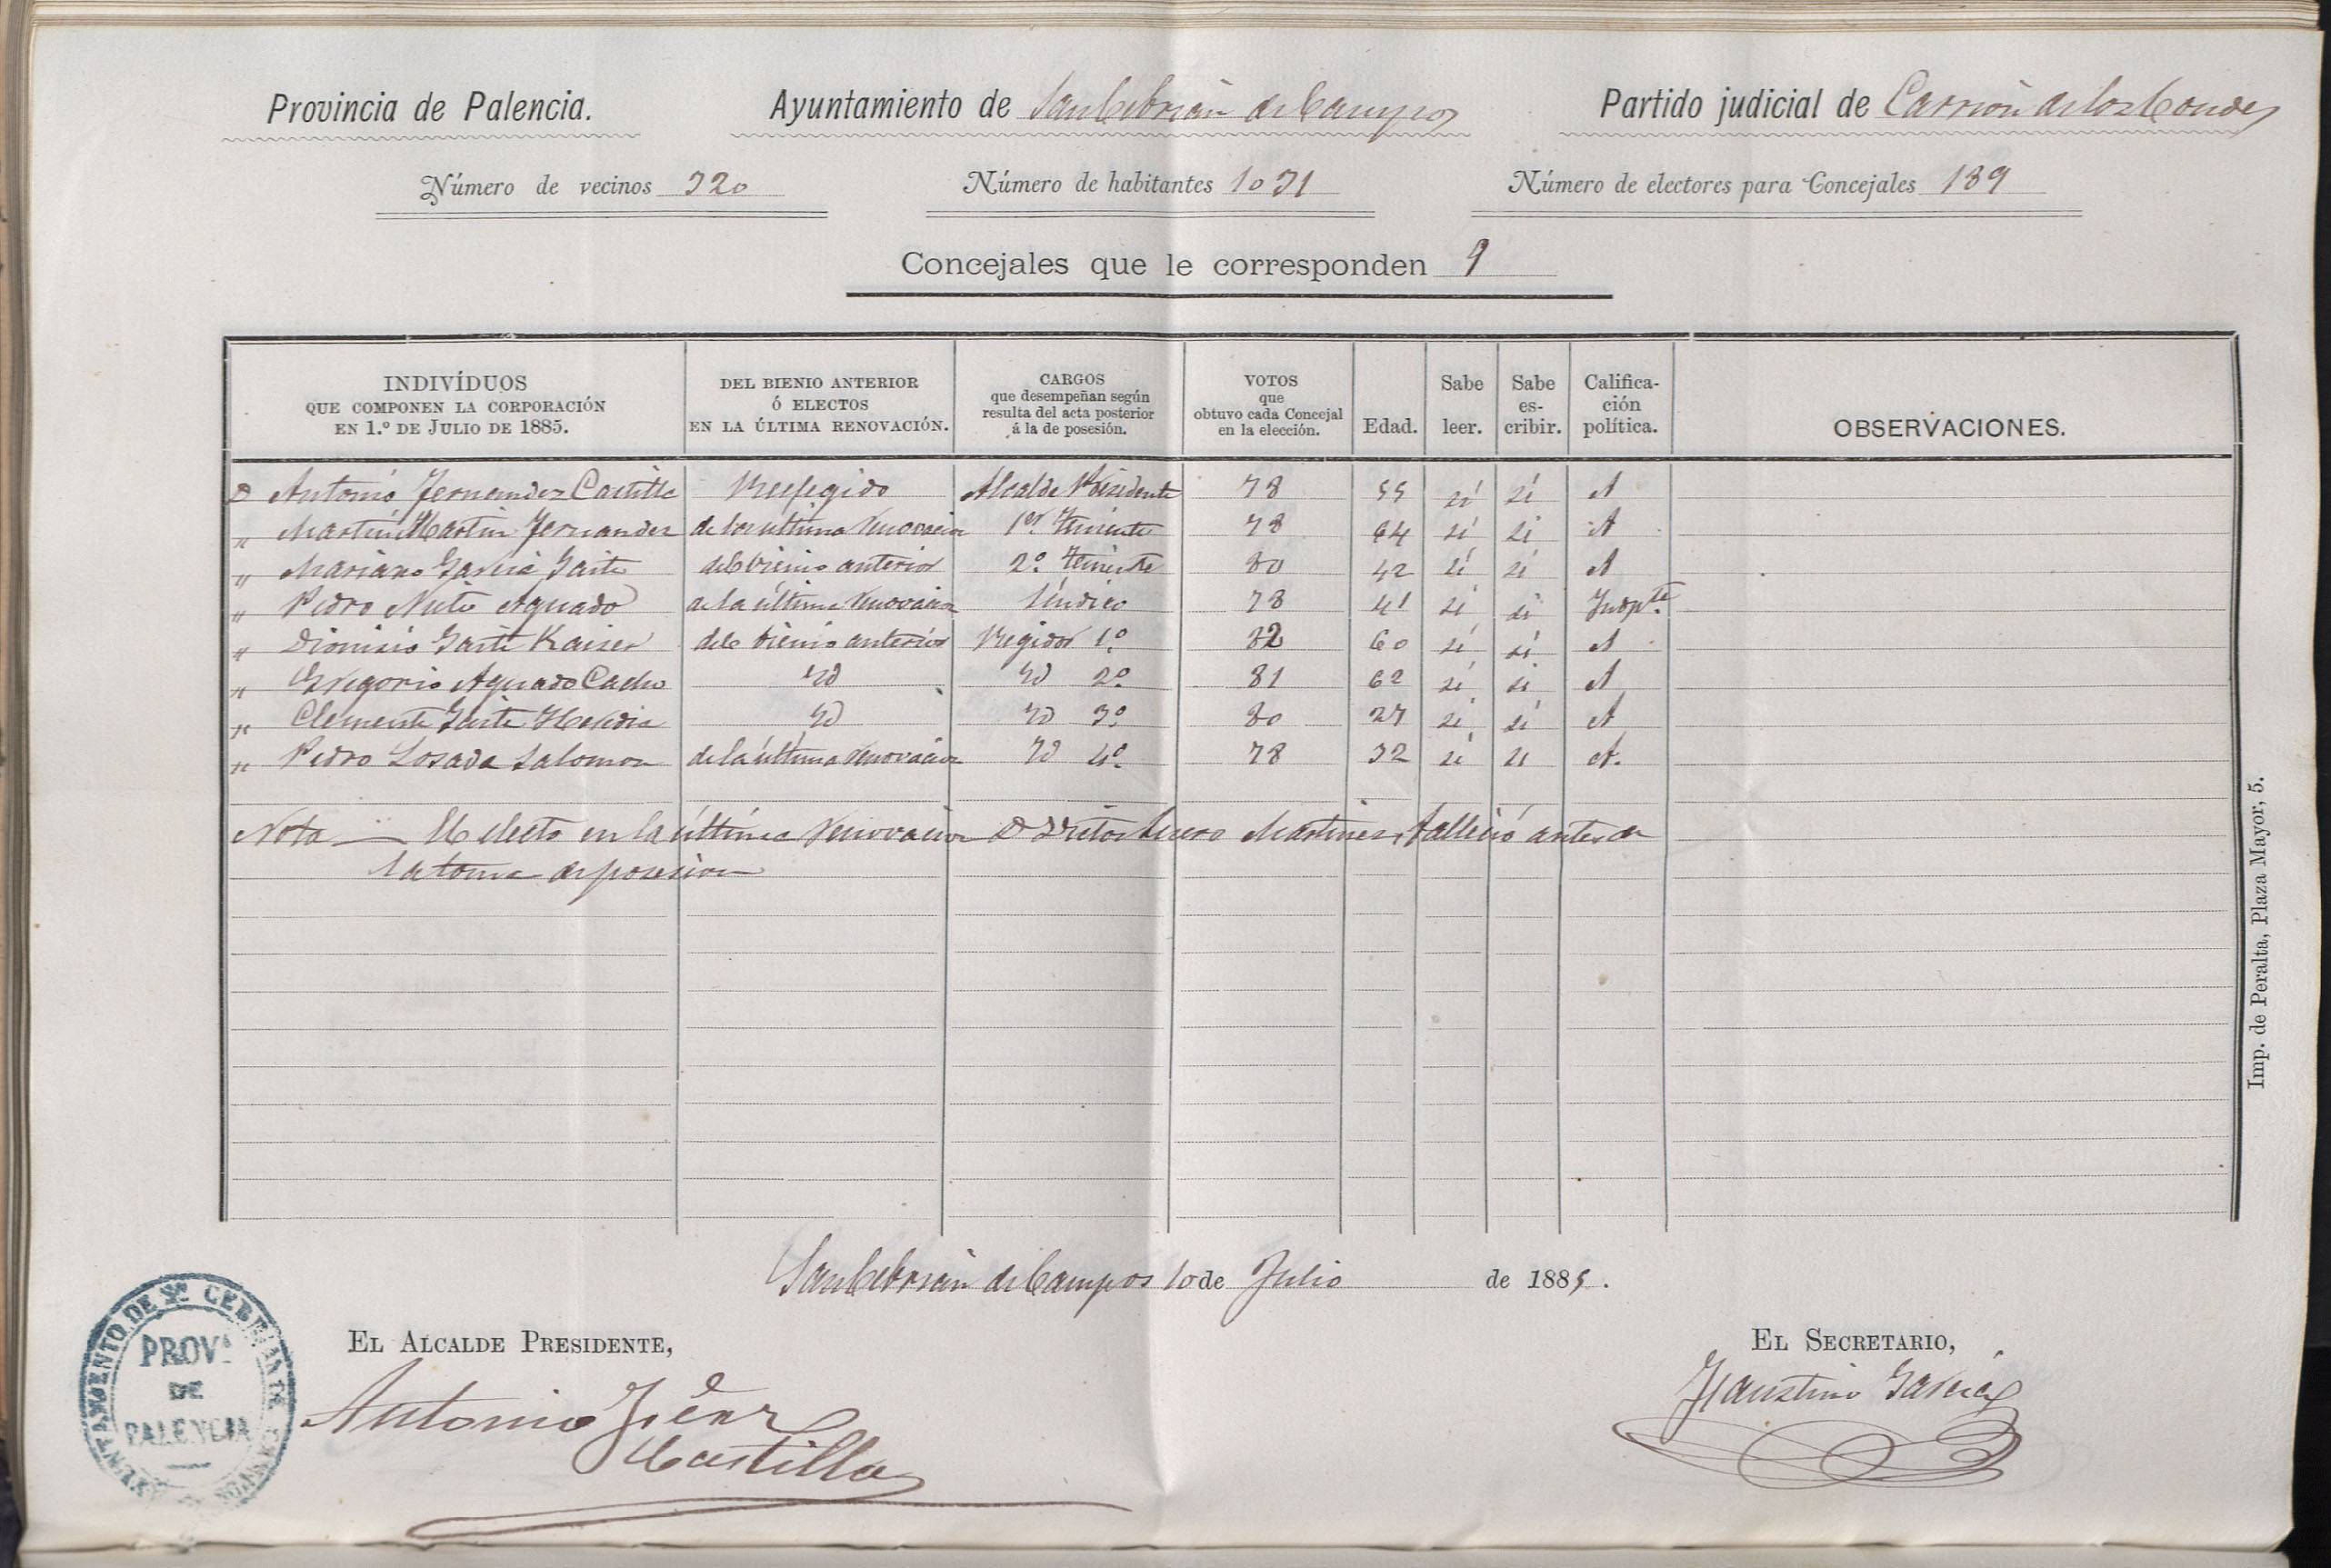 Provincia de Palencia. Ayuntamiento de San Cebrián de Campos Partido judicial de Carrión de los Condes
Número de vecinos 320 Número de habitantes 1031 Número de electores para Concejales 189
Concejales que le corresponden 9
INDIVÍDUOS QUE COMPONEN LA CORPORACIÓN EN 1.º DE JULIO DE 1885. DEL BIENIO ANTERIOR Ó ELECTOS EN LA ÚLTIMA RENOVACIÓN. CARGOS que desempeñan según resulta del acta posterior á la de posesión. VOTOS que obtuvo cada Concejal en la elección. Edad. Sabe leer. Sabe es- cribir. Califica- ción política. OBSERVACIONES.
D Antonio Fernandez Castilla Reelegido Alcalde Presidente 78 55 sí sí A
" Martin Martin Fernandez de la última renovacion 1er Teniente 78 64 sí si A
" Mariano Garcia Gaite del bienio anterior 2º Teniente 80 42 sí sí A
" Pedro Nieto Aguado de la última renovacion Síndico 78 41 si si Indpte.
" Dionisio Gaite del bienio anterior Regidor 1º 82 60 sí sí A
" Gregorio Aguado Cacho Id Id 2º 81 62 si si A
" Clemente Gaite Heredia Id Id 3º 80 27 si si A
" Pedro Losada Salomon de la última renovacion Id 4º 78 32 si si A.
Nota — El electo en la última renovacion D Martinez, falleció antes de
la toma de posesion
San Cebrián de Campos 10 de Julio de 1885.
EL ALCALDE PRESIDENTE, EL SECRETARIO,
Antonio Frnez Castilla
Faustino Garcia
AYUNTAMIENTO DE Sn. CEBRIAN DE CAMPOS
PROVa. DE PALENCIA
Imp. de Peralta, Plaza Mayor, 5.